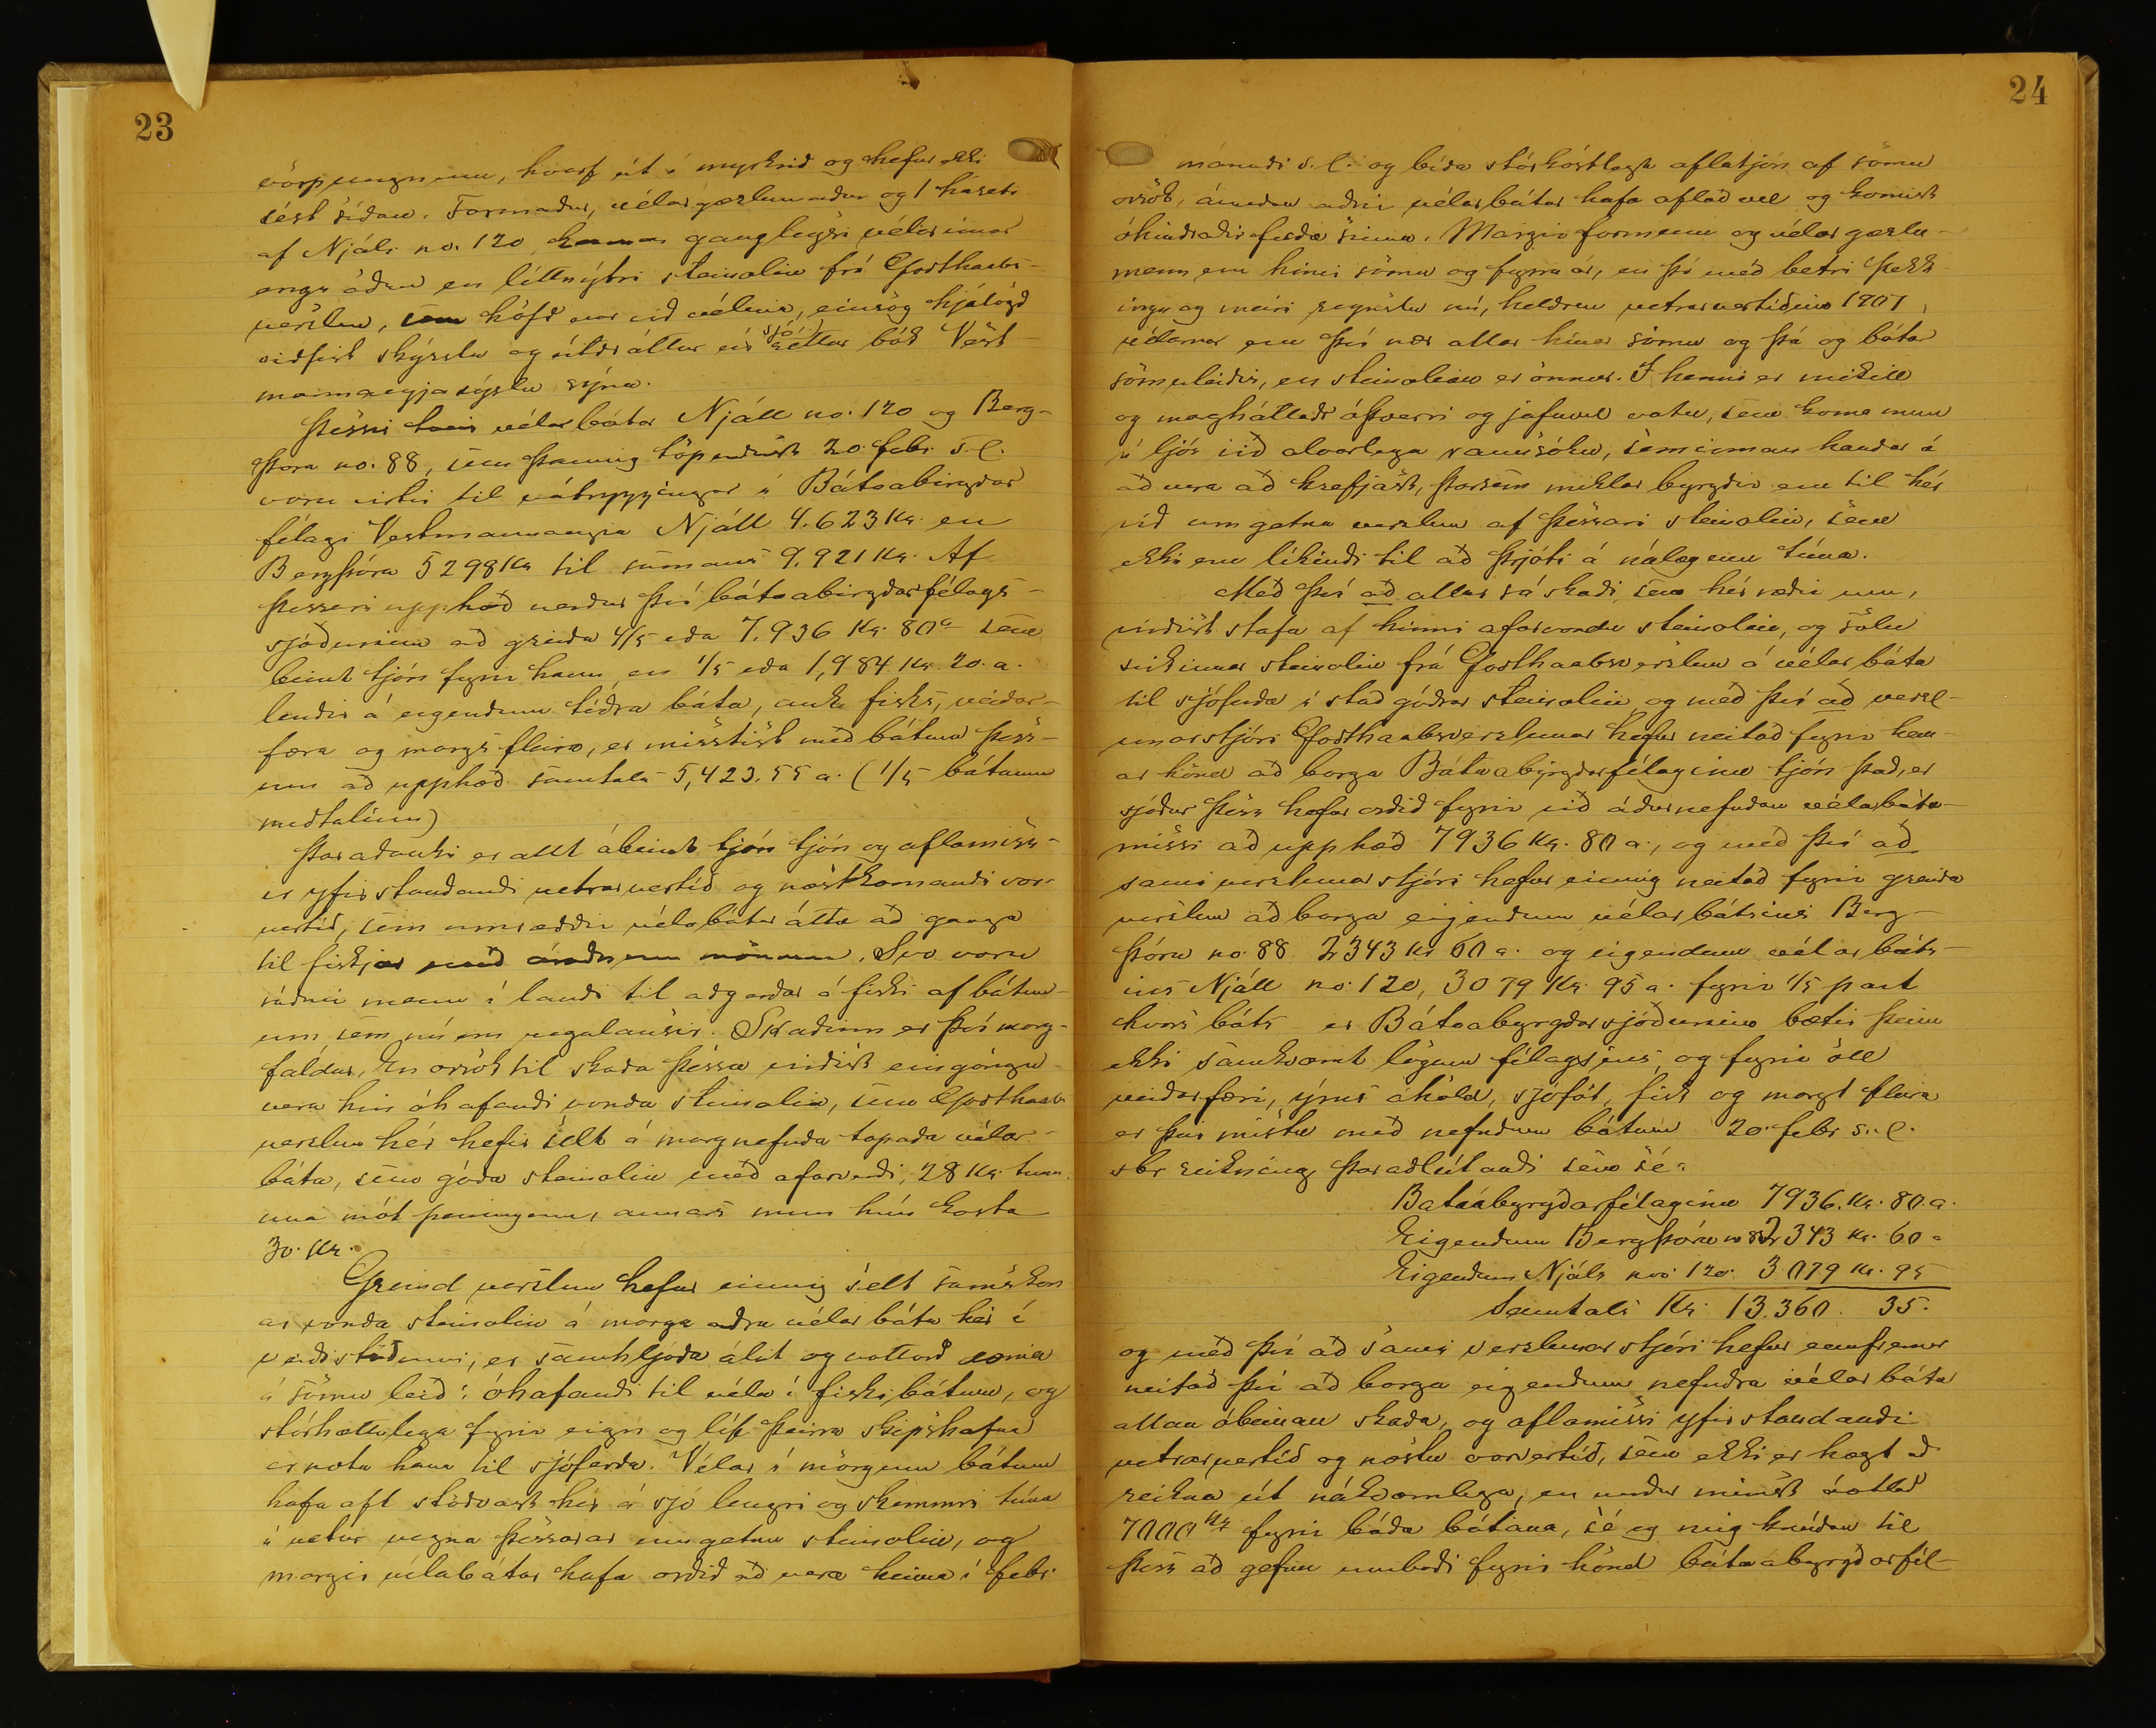 23
vörpungnum, hvarf út í myrkrið og hefur ekki
sést síðan. Formaður, vélargæzlumaður og 1 háseti
af Njáli no. 120 kenna gangleysi vélarinnar
engu öðru en lítt nýtri steinolíu frá Godthaabs-
verslun, sem höfð var við vélina, einsog hjálögð
viðfest skýrsla og útdráttur úr sjóréttar bók Vest-
mannaeyjasýslu sýna.
Þessir tveir vélarbátar Njáll no. 120 og Berg-
þóra no. 88, sem þannig töpuðust 20. febr. s.l.
voru virtir til vátryggingar í Bátaábirgðar
félagi Vestmannaeyja Njáll 4.623 Kr. en
Bergþóra 5298 Kr til samans 9.921 Kr. Af
þessari upphæð verður því bátaabirgðarfélags-
sjóðurinn að greiða 4/5 eða 7.936 Kr. 80 a sem
beint tjón fyrir hann, en 1/5 eða 1,984 Kr. 20. a.
lendir á eigendum téðra báta, auk fisks, veiðar-
færa og margs fleira, er misstist með bátum þess-
um að upphæð samtals 5,423.55 a. (1/5 bátanna
meðtalinn)
Þar að auki er allt óbeint tjón tjón og aflamiss-
ir yfirstandandi vetrarvertíð og næstkomandi vor-
vertíð, sem umræddir vélabátar áttu að ganga
til fiskjar með ráðnum mönnum. Svo voru
ráðnir menn í landi til aðgerðar á fiski af bátun-
um sem nú eru vegalausir. Skaðinn er því marg-
faldur, En orsök til skaða þessa virðist eingöngu
vera hin óhafandi vonda steinolía, sem Godthaab
verzlun hér hefir selt á margnefnda tapaða vélar-
báta, sem góða steinolíu með afarverði, 28 Kr. tunn-
una mót peningum, annars mun hún kosta
30. Kr.
Greind verslun hefur einnig selt samskon
ar vonda steinolíu á marga aðra vélarbáta hér í
veiðistöðunni, er samhljóða álit og vottorð
á sömu leið: óhafandi til véla í fiskibátum, og
stórhættulega fyrir eign og líf þeirra skipshafna
er nota hana til sjóferða. Vélar í mörgum bátum
hafa oft stöðvast hér á sjó lengri og skemmri tíma
í vetur vegna þessarar umgetnu steinolíu, og
margir vélabátar hafa orðið að vera heima í febr
24
mánuði s.l. og bíða stórkostlegt aflatjón af sömu
orsök, ámeðan aðrir vélarbátar hafa aflað vel og komist
óhindraðir ferða sinna. Margir formenn og vélar gæzlu-
menn eru hinir sömu og fyrra ár, en þó með betri þekk-
ingu og meiri reynslu nú, heldren vetrarvertíðina 1907,
vélarnar eru því nær allar hinar sömu og þá og bátar
sömuleiðis, en steinolían er önnur. Í henni er mikill
og magháttaðr óþverri og jafnvel vatn, sem koma mun
í ljós við alvarlega rannsókn, sem innan handar á
að vera að krefjast, þarsem miklar byrgðir eru til hér
við umgetna verzlun af þessari steinolíu, sem
ekki eru líkindi til að þrjóti á nálægum tíma.
Með því að allur sá skaði, sem hér ræðir um,
virðist stafa af hinni afarvondu steinolíu, og sölu
svikinnar steinolíu frá Godthaabsverslun á vélarbáta
til sjóferða í stað góðrar steinolíu og með því að verzl-
unarstjóri Godthaabsverzlunar hefur neitað fyrir henn-
ar hönd að borga Bátaabyrgðarfélaginu tjón það, er
sjóður þess hefur orðið fyrir við áðurnefndan vélarbáta-
missi að upphæð 7936 Kr. 80 a., og með því að
sami verzlunarstjóri hefur einnig neitað fyrir greinda
verslun að borga eigendum vélarbátsins Berg-
þóru no. 88 2343 Kr 60 a. og eigendum vélarbáts-
ins Njáll no. 120, 3079 Kr. 95 a. fyrir 1/5 part
hvors báts er Bátaabyrgðarsjóðurinn bætir þeim
ekki samkvæmt lögum félagsins, og fyrir öll
veiðarfæri, ýms áhöld, sjóföt, fisk og margt fleira
er þeir mistu með nefndum bátum 20. febr. s.l.
sbr reikning þaraðlútandi sem sé:
Bataábyrgðarfélaginu 7936. Kr. 80. a.
Eigendum Bergþóru no 88 2343 Kr. 60 "
Eigendum Njáls no: 120. 3079 Kr. 95
Samtals Kr. 13.360. 35.
og með því að sami verzlunarstjóri hefur ennfremur
neitað því að borga eigendum nefndra vélarbáta
allan óbeinan skaða, og aflamissi yfirstandandi
vetrarvertíð og næstu vorvertíð, sem ekki er hægt að
reikna út nákvæmlega, en verður minnst áætlað
7000 Kr fyrir báða bátana, sé eg mig knúðan til
þess að gefnu umboði fyrir hönd bátaabyrgðarfél-